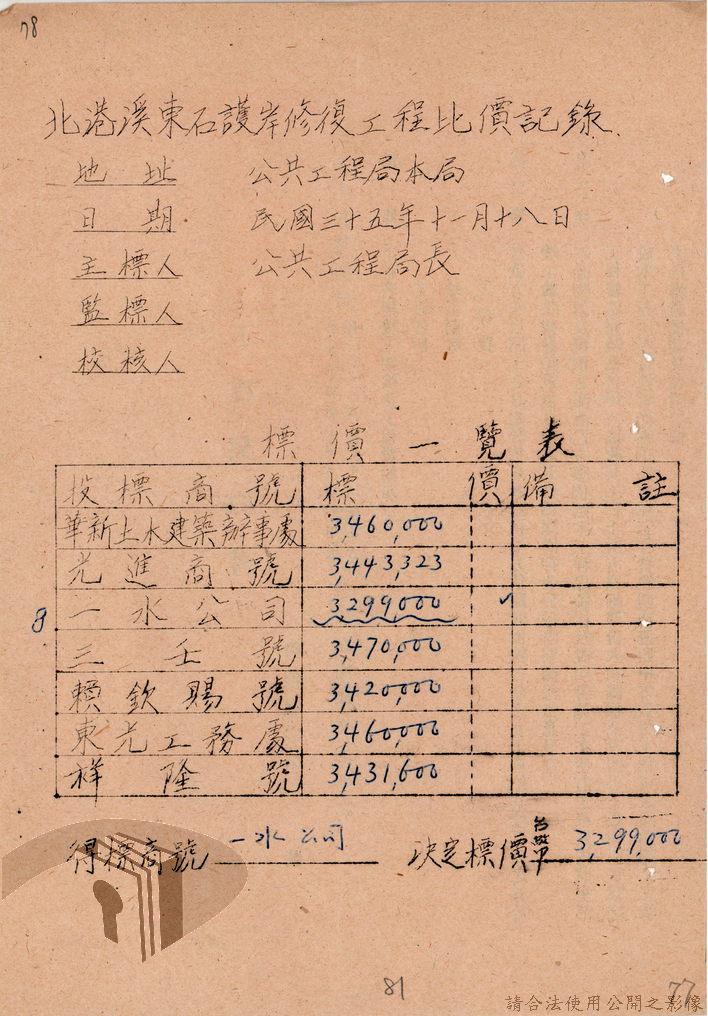 78
北港溪東石護岸修復工程比價記錄
地址 公共工程局本局
日期 民國三十五年十一月十八日
主標人 公共工程局長
監標人
校核人
標價一覽表
投標商號 標價 備註
華新土木建築辦事處 3,460,000
光進商號 3,443,323
8 一水公司 3,299,000 ✓
三壬號 3,470,000
賴欽賜號 3,420,000
東光工務處 3,460,000
祥隆號 3,431,600
得標商號 一水公司 決定標價 台幣 3,299,000
81
77
請合法使用公開之影像